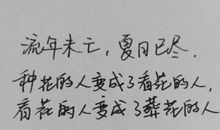 流年未亡，夏日已尽．
种花的人变成了看花的人，
看花的人变成了葬花的人